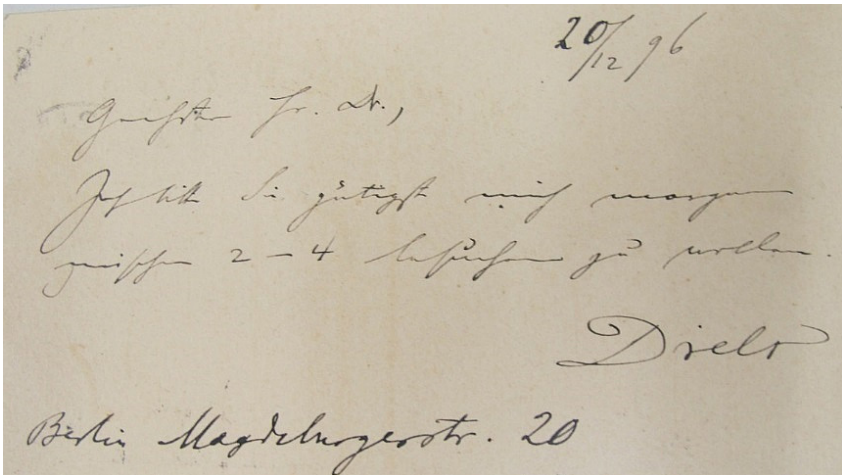 20/12 96
Geehrter Hr. Dr.,
Ich bitte Sie gütigst mich morgen
zwischen 2 – 4 besuchen zu wollen.
Diels
Berlin Magdeburgerstr. 20